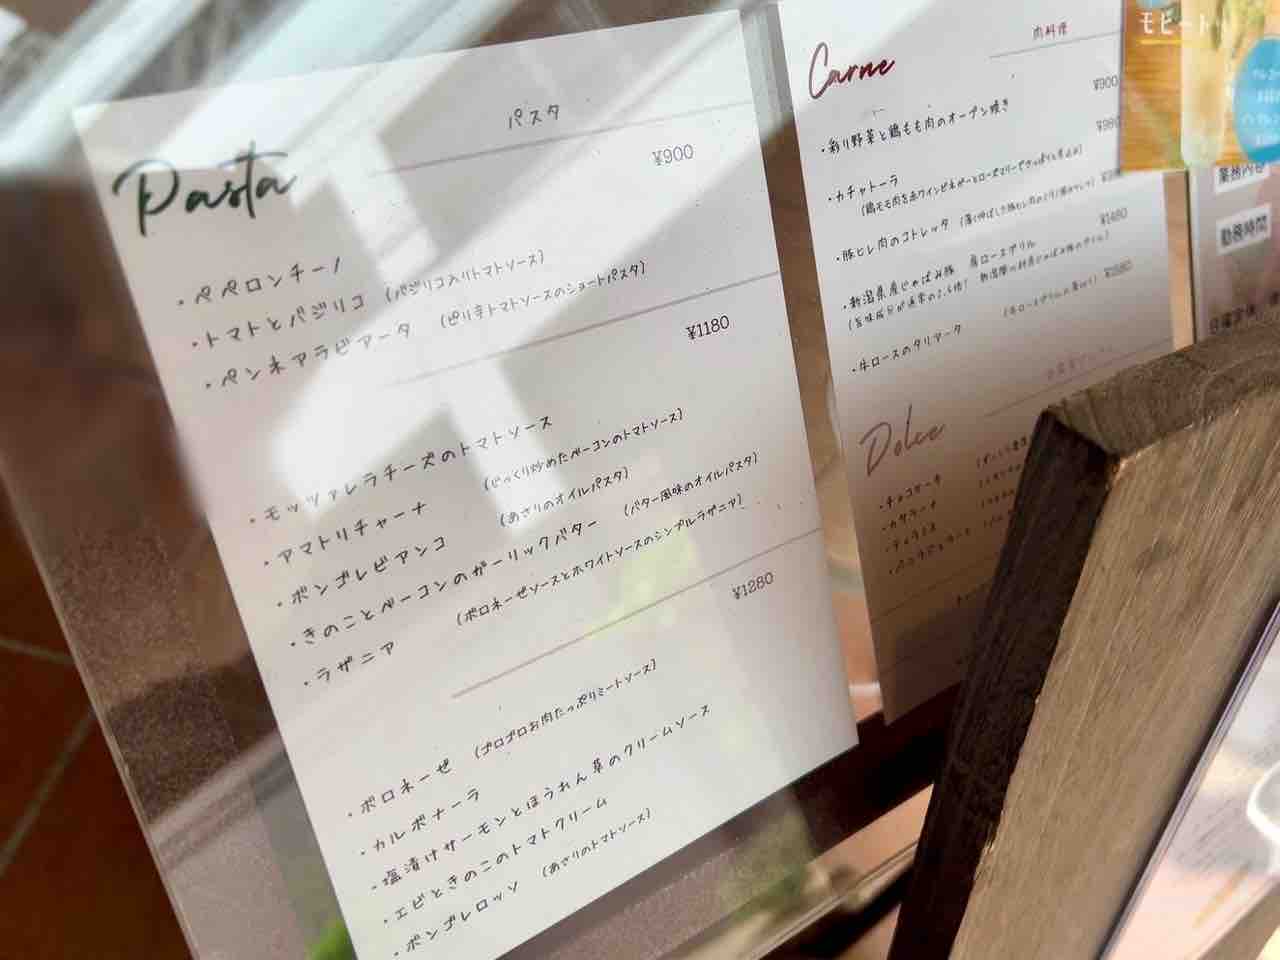 パスタ
Pasta
¥900
・ペペロンチーノ
・トマトとバジリコ (バジリコ入りトマトソース)
・ペンネアラビアータ (ピリ辛トマトソースのショートパスタ)
¥1180
・モッツァレラチーズのトマトソース
・アマトリチャーナ (じっくり炒めたベーコンのトマトソース)
・ボンゴレビアンコ (あさりのオイルパスタ)
・きのことベーコンのガーリックバター (バター風味のオイルパスタ)
・ラザニア (ボロネーゼソースとホワイトソースのシンプルラザニア)
¥1280
・ボロネーゼ (ゴロゴロお肉たっぷりミートソース)
・カルボナーラ
・塩漬けサーモンとほうれん草のクリームソース
・エビときのこのトマトクリーム
・ボンゴレロッソ (あさりのトマトソース)
肉料理
Carne
¥900
・彩り野菜と鶏もも肉のオーブン焼き
¥980
・カチャトーラ
(鶏もも肉を赤ワインビネガーとローズマリーでさっぱりと煮込み)
・豚ヒレ肉のコトレッタ
¥1480
・新潟県産じゃばみ豚 肩ロースグリル
・牛ロースのタリアータ
Dolce
・チョコケーキ
・カタラーナ
・ティラミス
モヒート
業務内容
勤務時間